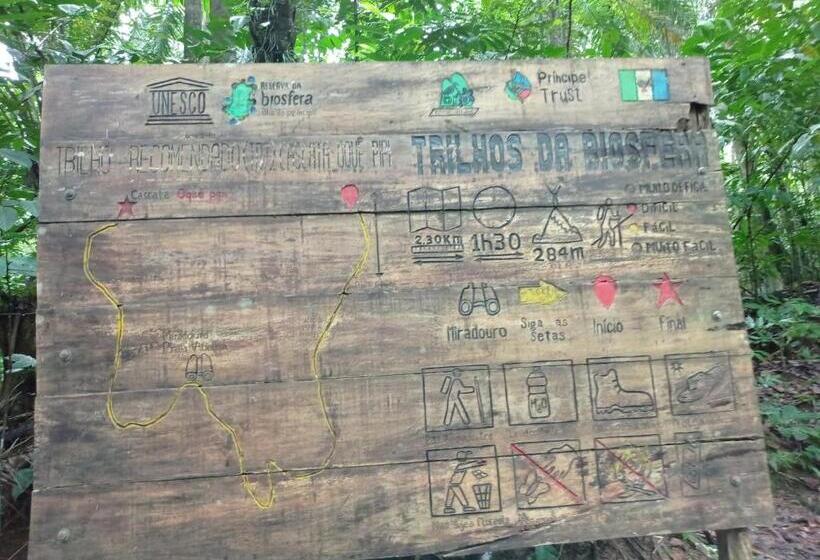 UNESCO
RESERVA DA
biosfera
Príncipe
Trust
TRILHO RECOMENDADO CASCATA OQUÊ PIPI
TRILHOS DA BIOSFERA
Cascata Oquê pipi
MUITO DIFICIL
DIFÍCIL
FÁCIL
MUITO FÁCIL
2.30KM
1h30
284m
Miradouro
Siga as
Setas
Início
Final
Miradouro
H2O